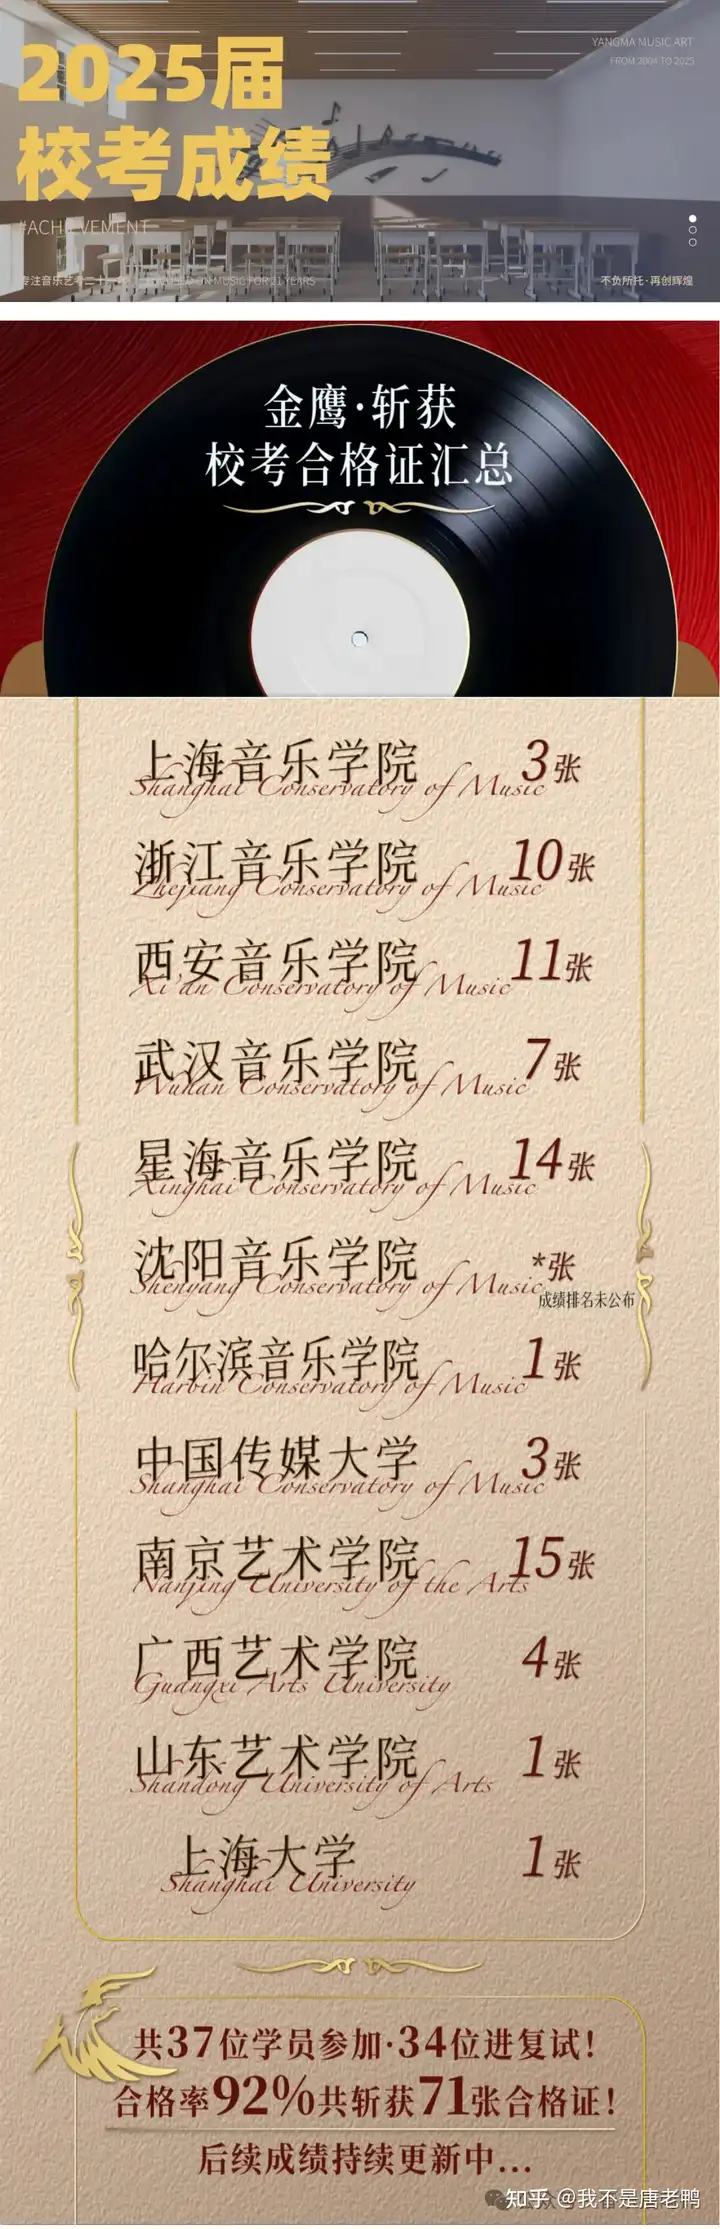 YANGMA MUSIC ART
FROM 2004 TO 2025
2025届
校考成绩
#ACHIEVEMENT
专注音乐艺考二十一年 FOCUSED ON MUSIC FOR 21 YEARS
不负所托·再创辉煌
金鹰·斩获
校考合格证汇总
上海音乐学院 3张
Shanghai Conservatory of Music
浙江音乐学院 10张
Zhejiang Conservatory of Music
西安音乐学院 11张
Xi'an Conservatory of Music
武汉音乐学院 7张
Wuhan Conservatory of Music
星海音乐学院 14张
Xinghai Conservatory of Music
沈阳音乐学院 *张
Shenyang Conservatory of Music
成绩排名未公布
哈尔滨音乐学院 1张
Harbin Conservatory of Music
中国传媒大学 3张
Shanghai Conservatory of Music
南京艺术学院 15张
Nanjing University of the Arts
广西艺术学院 4张
Guangxi Arts University
山东艺术学院 1张
Shandong University of Arts
上海大学 1张
Shanghai University
共37位学员参加·34位进复试!
合格率92%共斩获71张合格证!
后续成绩持续更新中...
知乎 @我不是唐老鸭